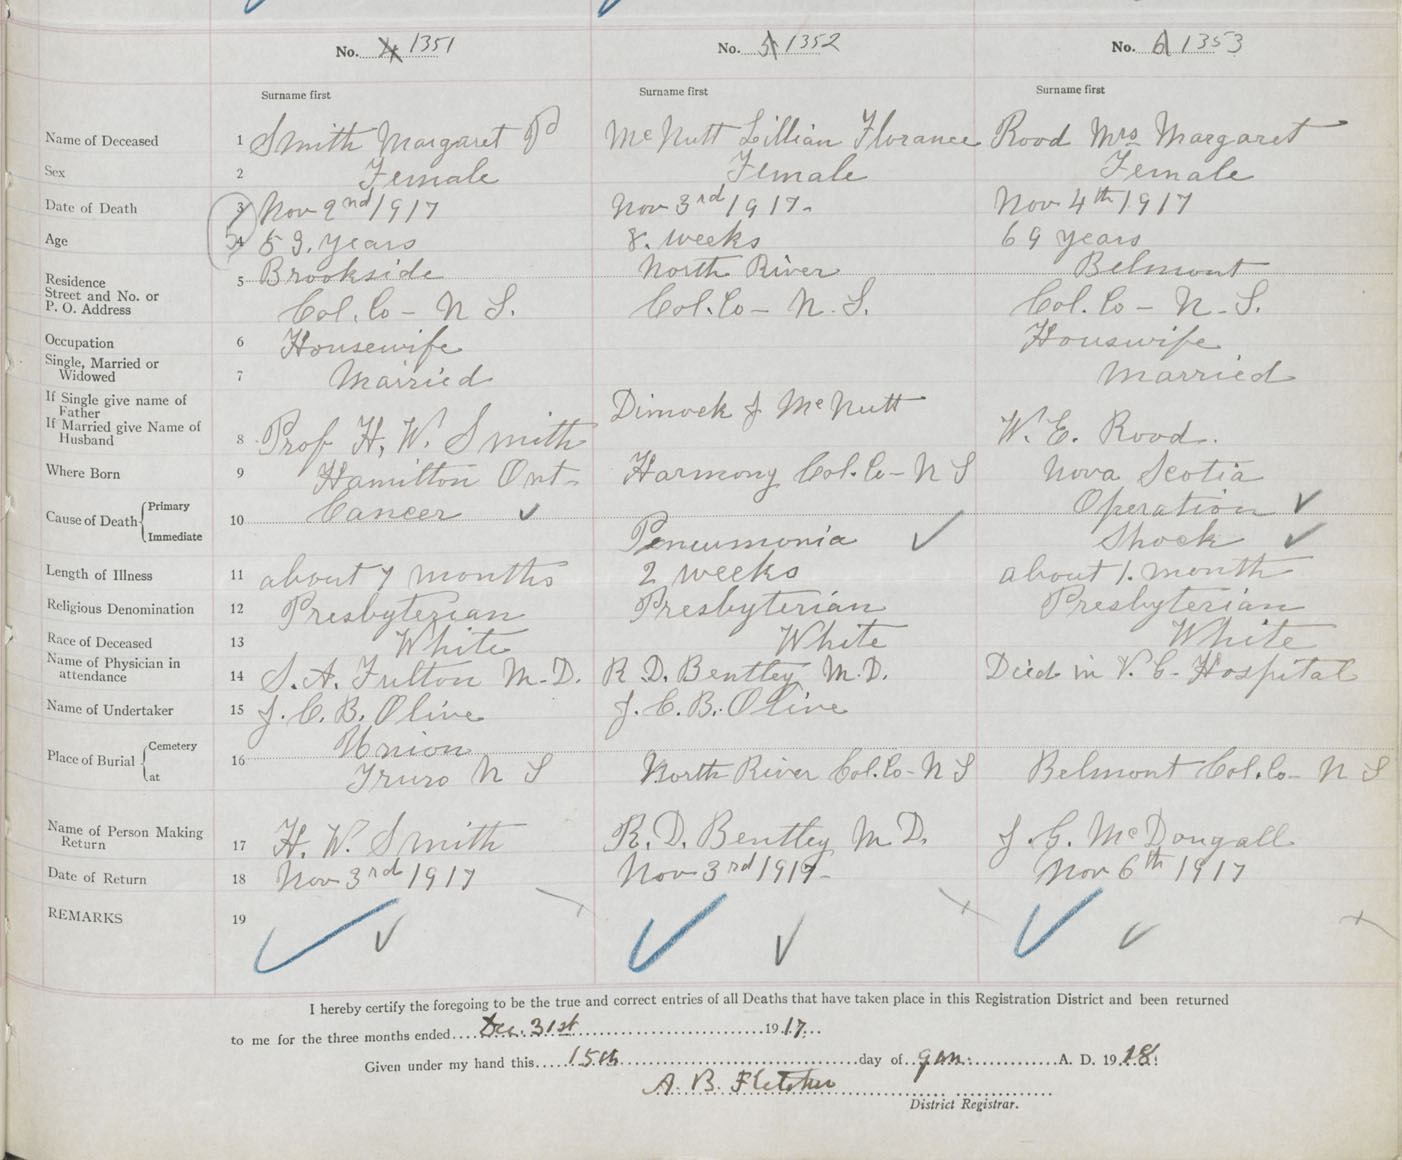 No. 4 1351 No. 5 1352 No. 6 1353
Surname first Surname first Surname first
Name of Deceased 1 Smith Margaret P McNutt Lillian Florance Rood Mrs Margaret
Sex 2 Female Female Female
Date of Death 3 Nov 2nd 1917 Nov 3rd 1917- Nov 4th 1917
Age 4 53. years 8. weeks 69 years
Residence
Street and No. or
P. O. Address
5 Brookside North River Belmont
Col. Co - N S. Col. Co - N. S. Col. Co - N. S.
Occupation 6 Housewife Houswife
Single, Married or
Widowed
7 Married Married
If Single give name of
Father
Dimock J McNutt
If Married give Name of
Husband
8 Prof H. W. Smith W. E. Rood.
Where Born 9 Hamilton Ont- Harmony Col. Co - N S Nova Scotia
Cause of Death Primary 10 Cancer ✓ Operation ✓
Immediate Pneumonia ✓ Shock ✓
Length of Illness 11 about 7 months 2 weeks about 1. month
Religious Denomination 12 Presbyterian Presbyterian Presbyterian
Race of Deceased 13 White White White
Name of Physician in
attendance
14 S. A. Fulton M.D. R. D. Bentley M.D. Died in V. G. Hospital
Name of Undertaker 15 J. C. B. Olive J. C. B. Olive
Place of Burial Cemetery 16 Union
at Truro N S North River Col. Co - N S Belmont Col. Co - N S
Name of Person Making
Return
17 H. W. Smith R. D. Bentley M D. J. G. McDougall
Date of Return 18 Nov 3rd 1917 Nov 3rd 1917- Nov 6th 1917
REMARKS 19 ✓ ✓ ✓ ✓ ✓ ✓
I hereby certify the foregoing to be the true and correct entries of all Deaths that have taken place in this Registration District and been returned
to me for the three months ended Dec. 31st 1917.
Given under my hand this 15th day of Jan. A. D. 1918.
A. B. Fletcher
District Registrar.